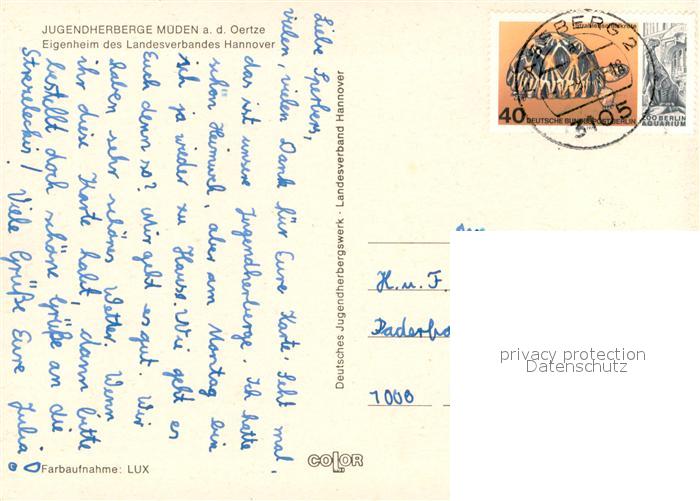 JUGENDHERBERGE MÜDEN a. d. Oertze
Eigenheim des Landesverbandes Hannover
Liebe Sperbers,
vielen, vielen Dank für Eure Karte. Seht mal,
das ist unsere Jugendherberge. Ich hatte
schön Heimweh, aber am Montag bin
ich ja wieder zu Hause. Wie geht es
Euch denn so? Mir geht es gut. Wir
haben sehr schönes Wetter. Wenn
ihr diese Karte habt, dann bitte
bestellt doch schöne Grüße an die
Viele Grüße Eure Julia
Farbaufnahme: LUX
Deutsches Jugendherbergswerk · Landesverband Hannover
COLOR
40 DEUTSCHE BUNDESPOST BERLIN
ZOO BERLIN
AQUARIUM
BERG 2
18
H. u. F.
1000
privacy protection
Datenschutz